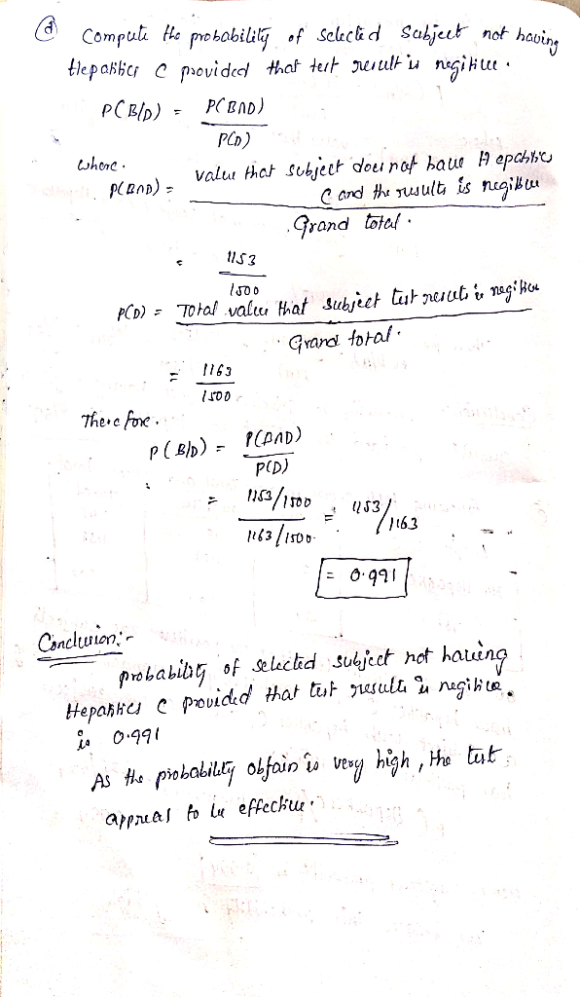 (d) Compute the probability of selected Subject not having
Hepatitics C provided that test result is negitive.
P(B/D) = P(B∩D)
P(D)
where.
P(B∩D) = value that subject does not have Hepatitics
C and the results is negitive
Grand total.
= 1153
1500
P(D) = Total values that subject test results is negitive
Grand total.
= 1163
1500
Therefore.
P(B/D) = P(B∩D)
P(D)
= 1153/1500 = 1153/1163
1163/1500
= 0.991
Conclusion:-
probability of selected subject not having
Hepatitics C provided that test results is negitive.
is 0.991
As the probability obtain is very high, the test
appreas to be effective.